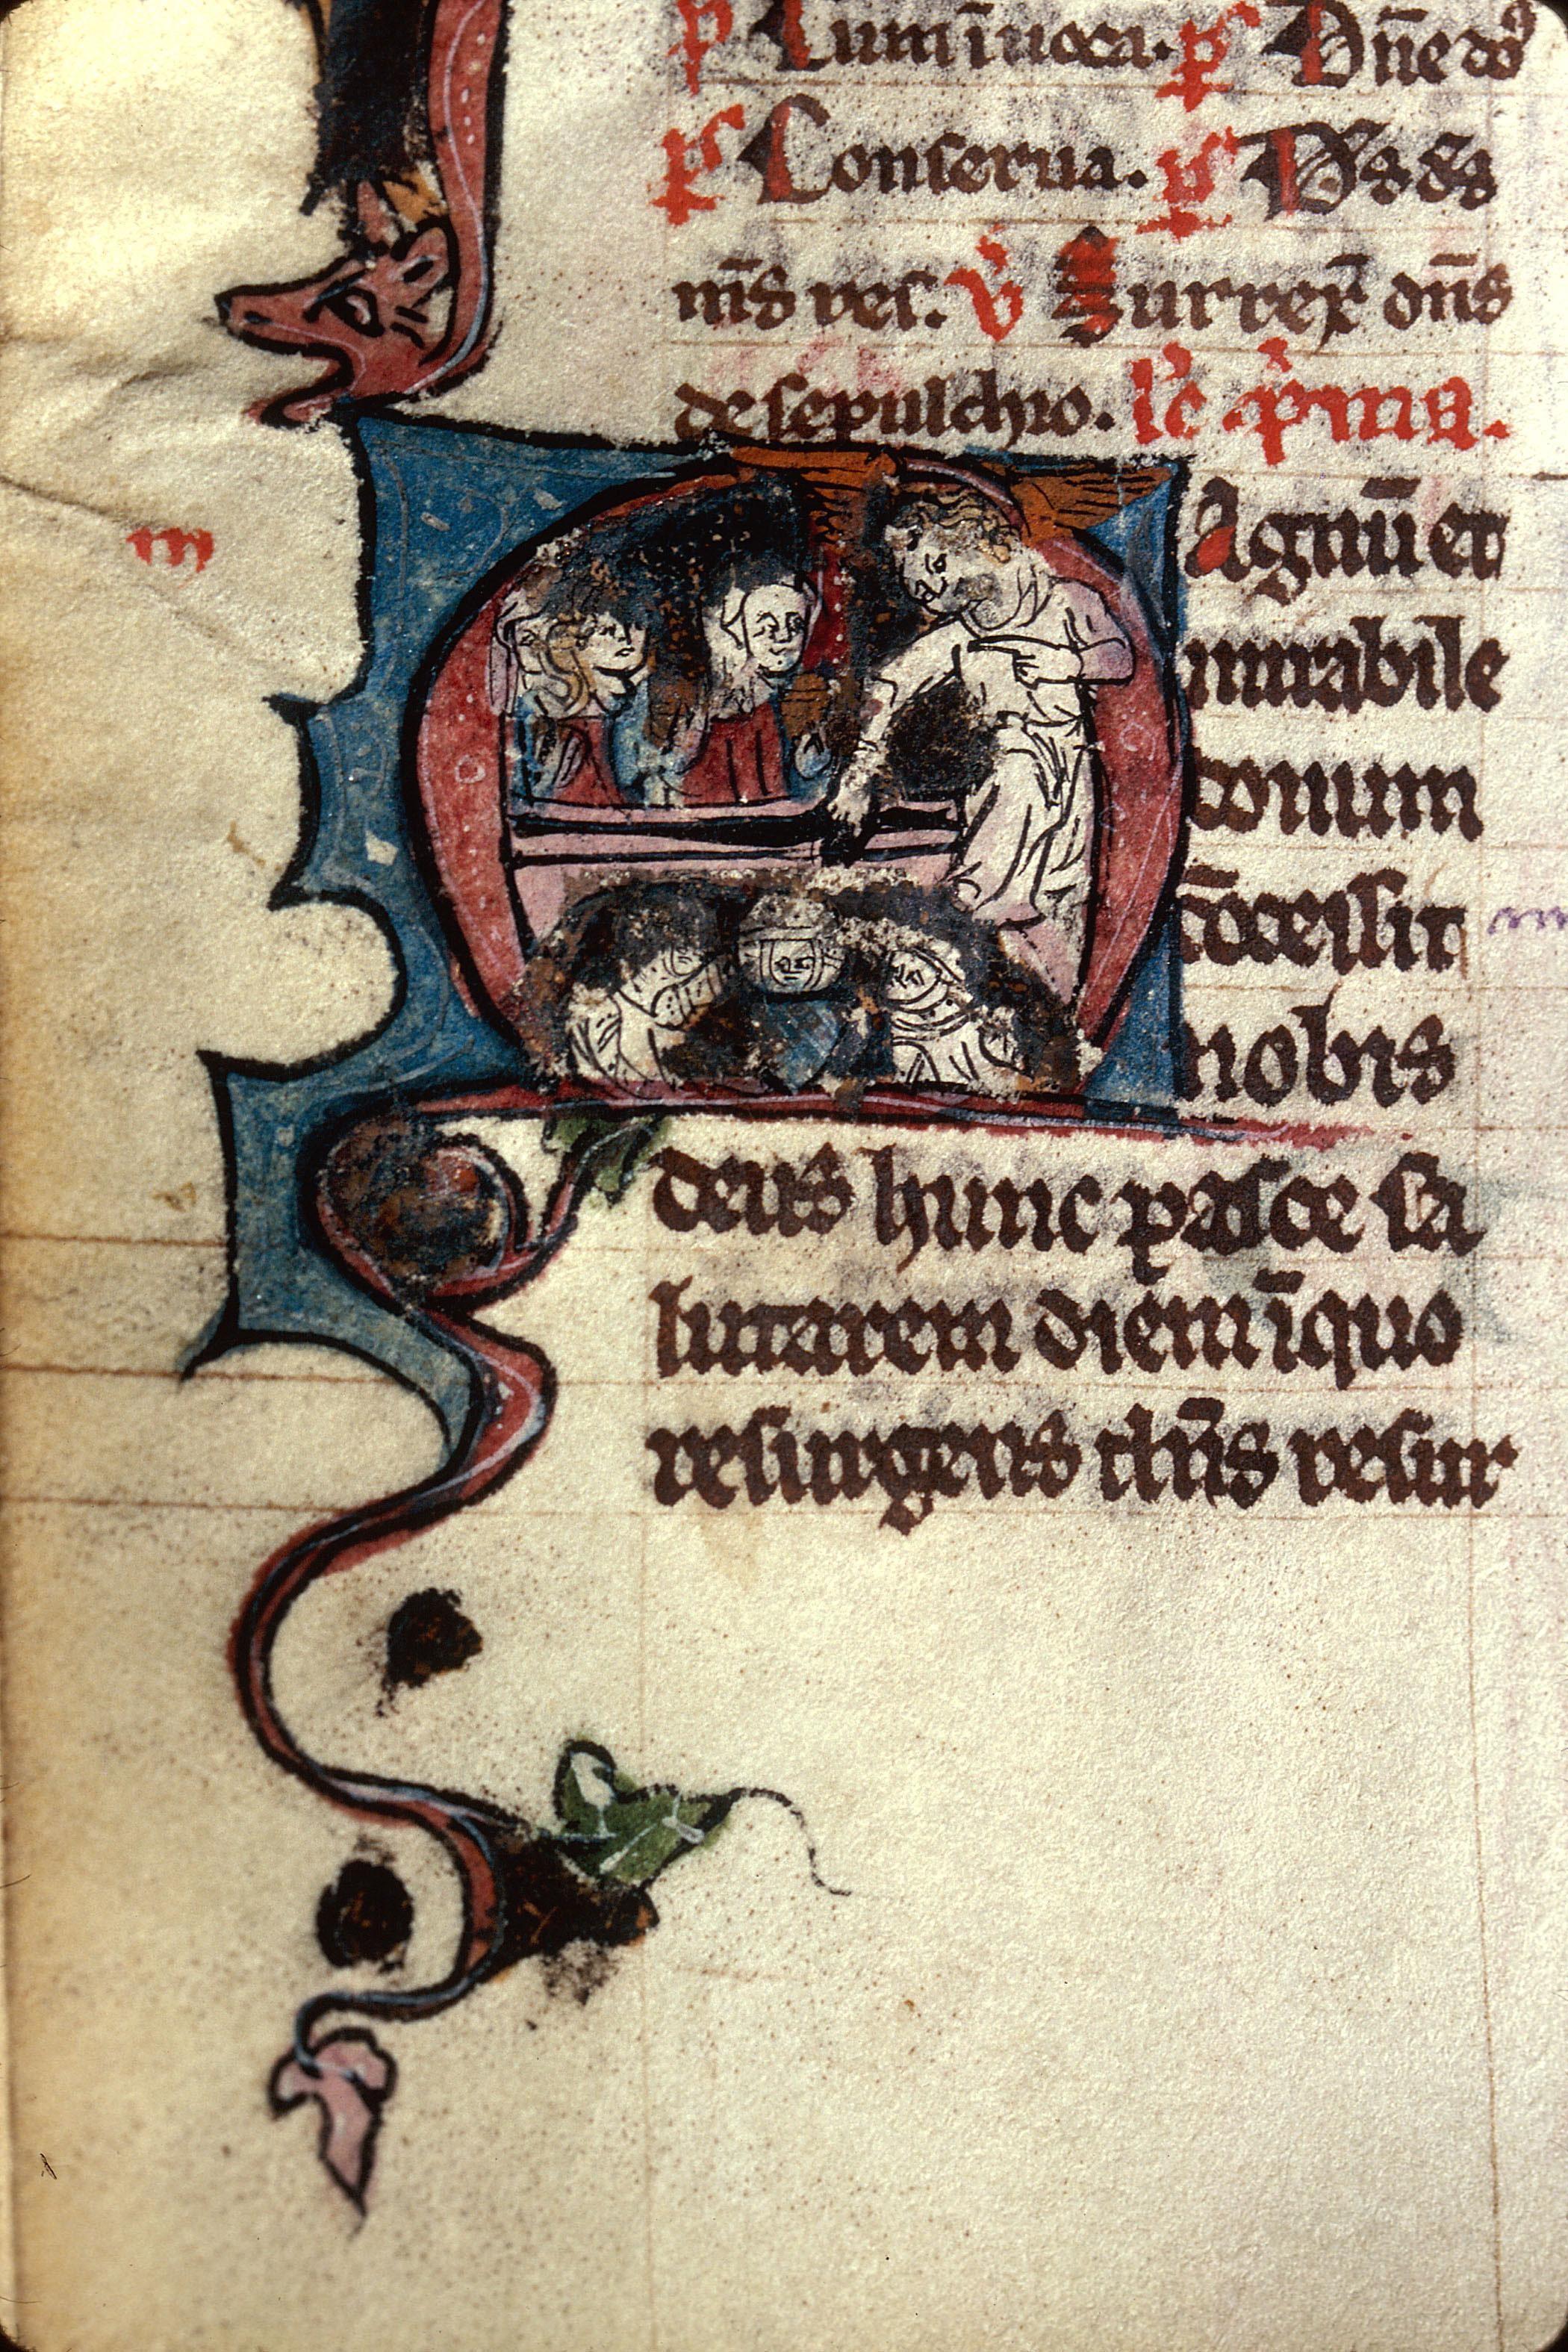 p̄ Cum īuoca. p̄s Dñe dōs
p̄s Conserua. p̄s Ds ds
ms res. v̇ Surrex̄ dñs
de sepulchro. lc̄ p̄ma.
m
Agnū et
mirabile
donum
cōcessit
nobis
deus hunc pasce sa
lutarem diem īquo
resurgens xp̄s resur